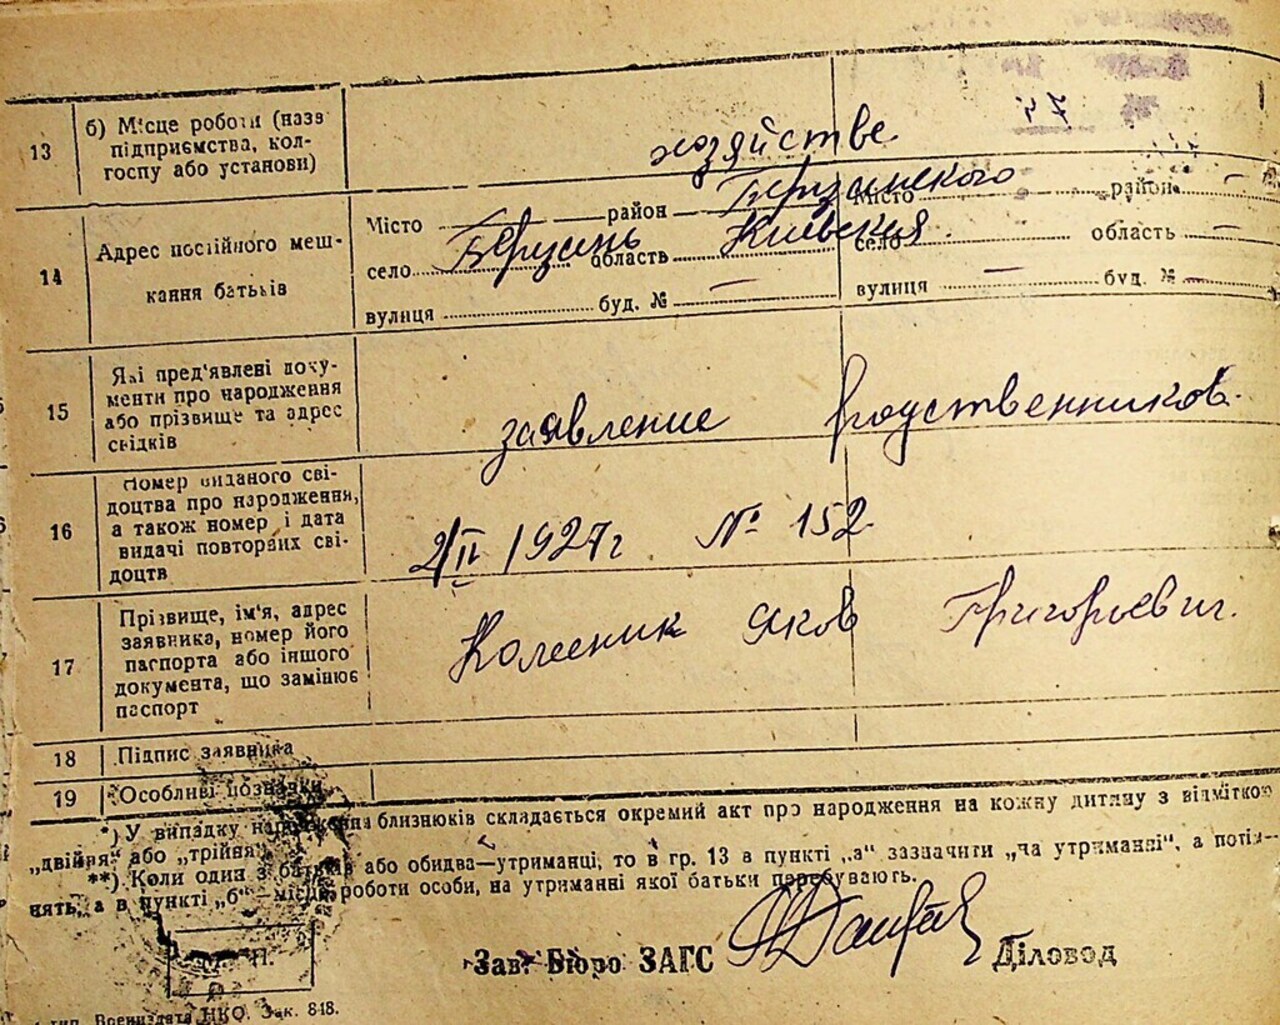 13
б) Місце роботи (назв
підприємства, кол-
госпу або установи)
хозяйстве
14
Адрес постійного меш-
кання батьків
Місто район Березанского Місто район
село Березань область Киевская село область
вулиця буд. № — вулиця — буд. № —
15
Які пред'явлені доку-
менти про народження
або прізвище та адрес
свідків
заявление родственников.
16
Номер виданого сві-
доцтва про народження,
а також номер і дата
видачі повторних сві-
доцтв
2/II 1927г № 152
17
Прізвище, ім'я, адрес
заявника, номер його
паспорта або іншого
документа, що замінює
паспорт
Колесник Яков Григорьевич.
18
Підпис заявника
19
Особливі позначки
*) У випадку народження близнюків складається окремий акт про народження на кожну дитину з відміткою
„двійня" або „трійня".
**) Коли один з батьків або обидва—утриманці, то в гр. 13 в пункті „а" зазначити „на утриманні", а
нять, а в пункті „б"—місце роботи особи, на утриманні якої батьки перебувають.
Зав. Бюро ЗАГС Діловод
тип. Воениздата НКО. Зак. 848.